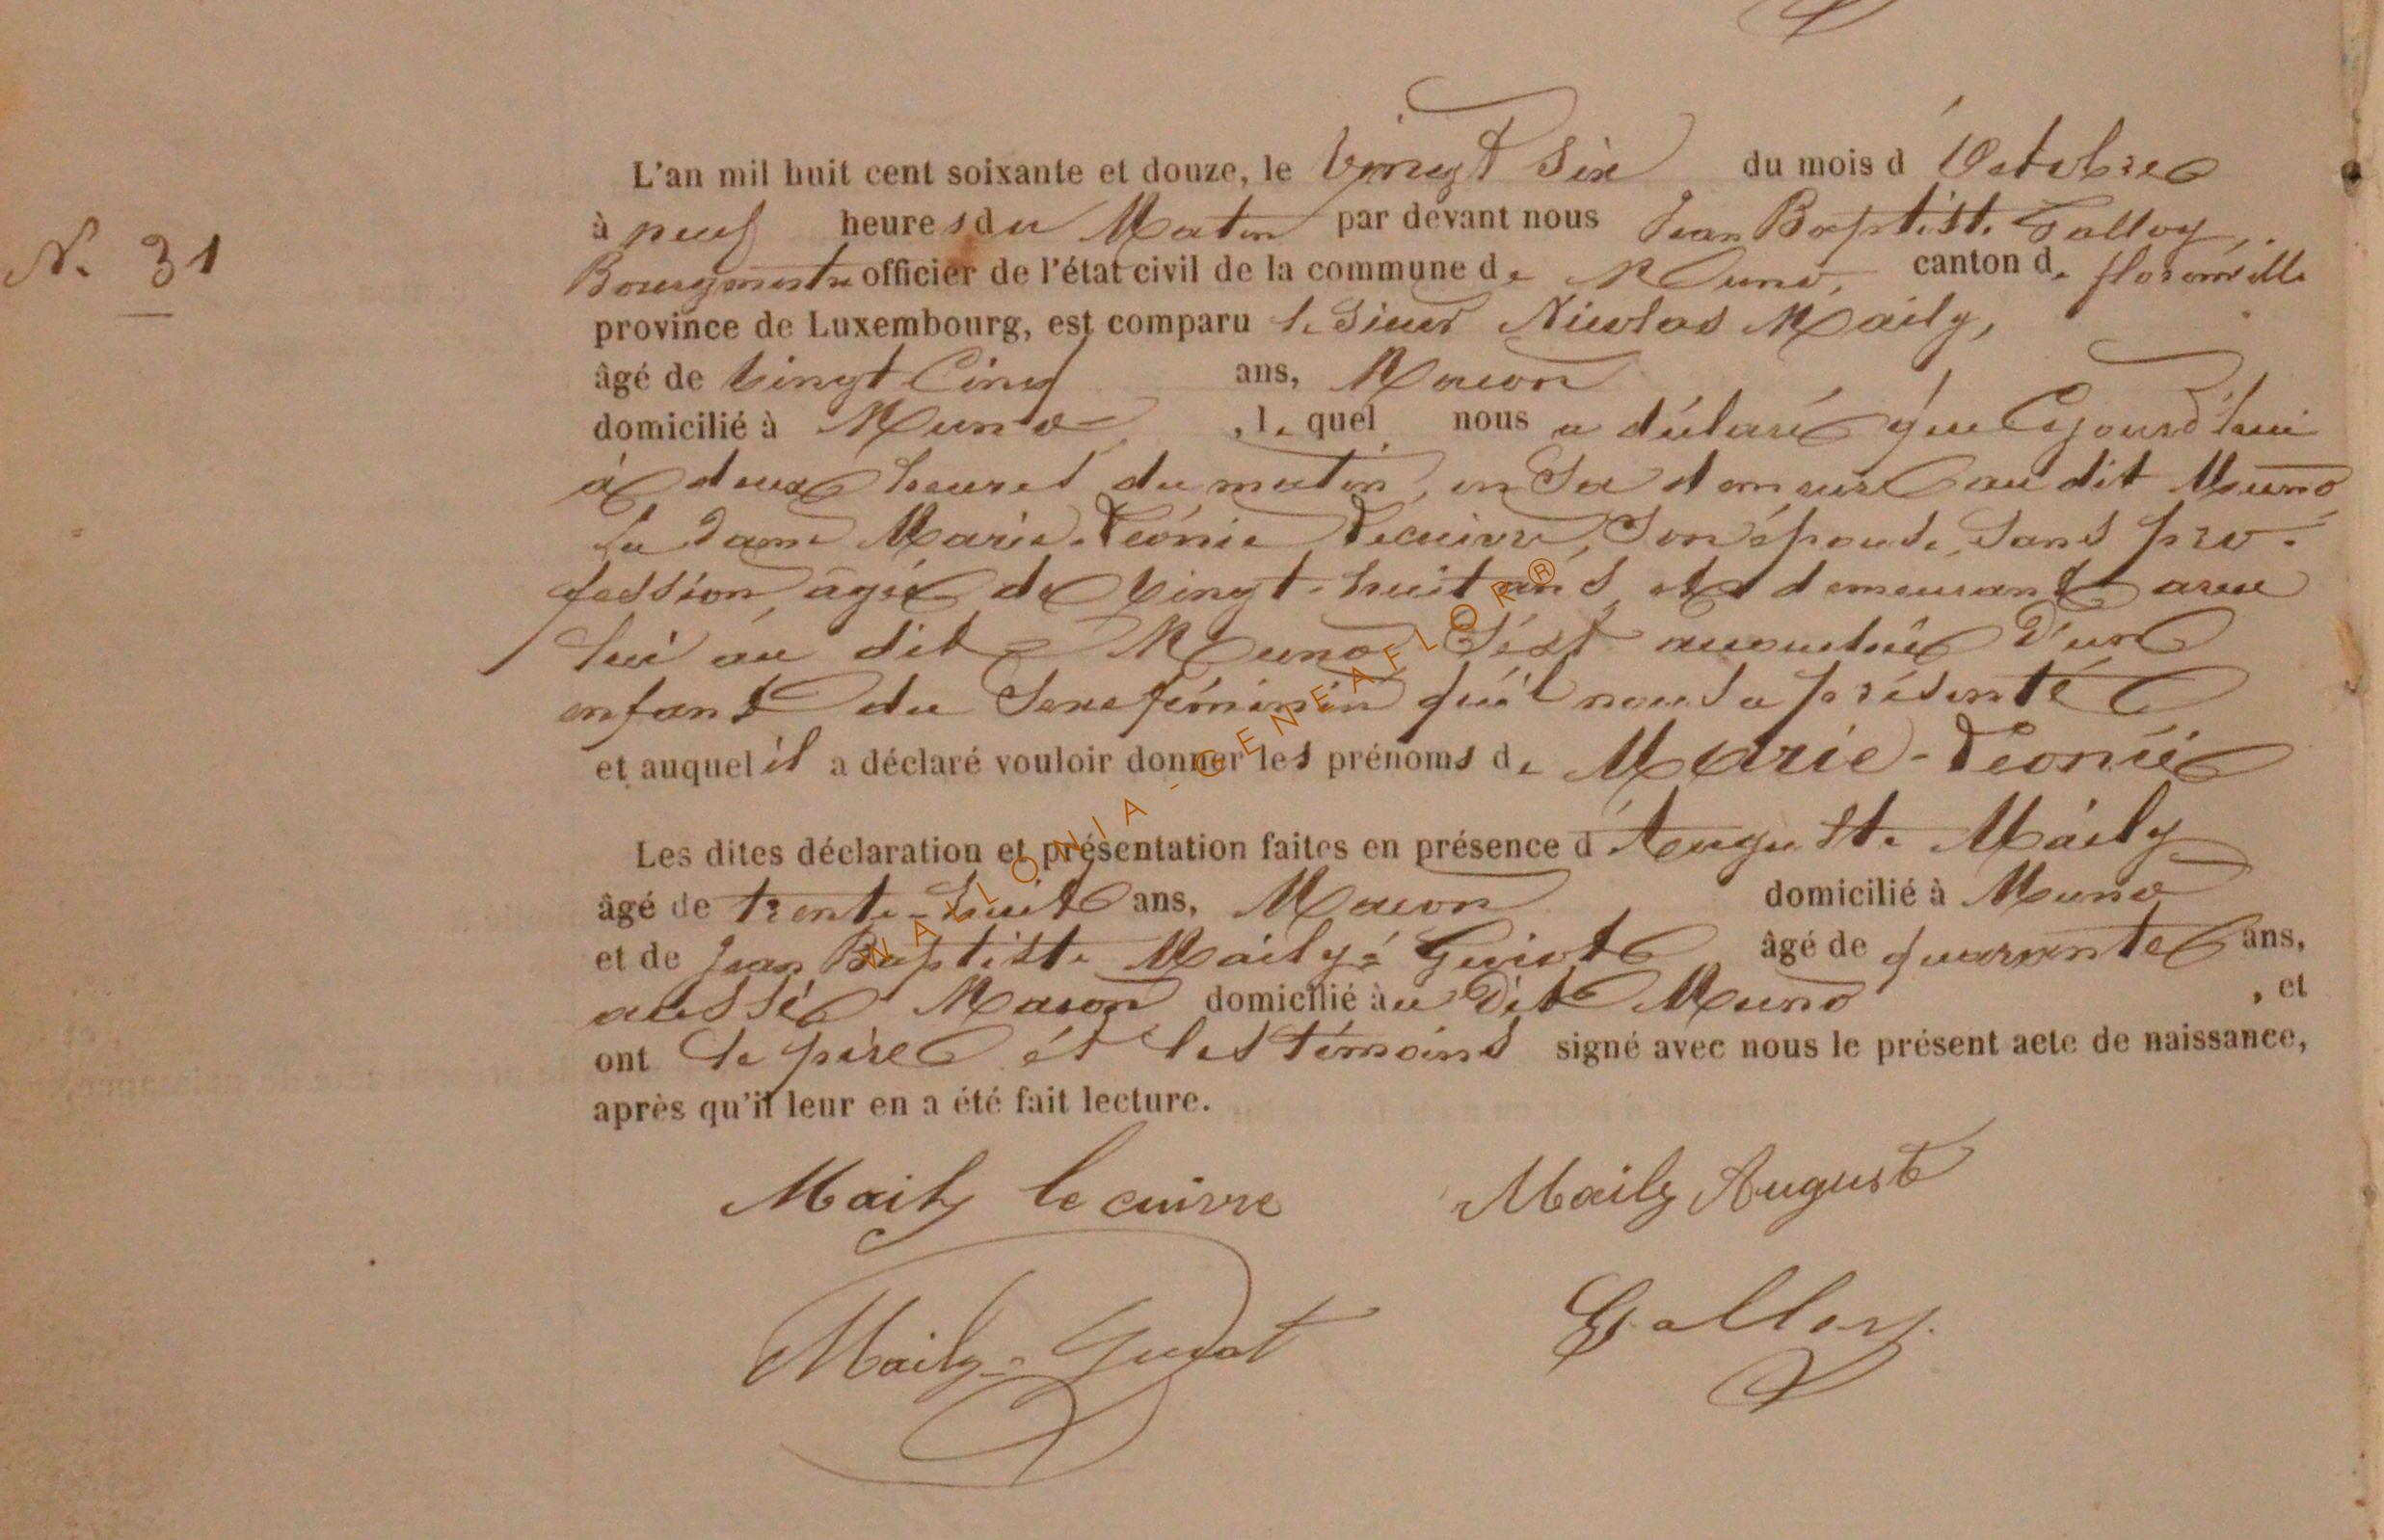 N. 31
L'an mil huit cent soixante et douze, le Vingt Six du mois d'Octobre
à neuf heures du Matin par devant nous Jean Baptiste Galloy,
Bourgmestre officier de l'état civil de la commune de Muno, canton de florenville
province de Luxembourg, est comparu le Sieur Nicolas Maily,
âgé de vingt Cinq ans, Macon
domicilié à Muno, lequel nous a déclaré que Cejourd'hui
à deux heures du matin, en Sa demeure au dit Muno
La Dame Marie-Léonie Lecuivre, Son épouse, Sans pro-
fession, agée de Vingt-huit ans, et demeurant avec
lui au dit Muno S'est accouchée D'un
enfant du Sexe féminin qu'il nous a présenté
et auquel il a déclaré vouloir donner les prénoms de Marie-Léonie
Les dites déclaration et présentation faites en présence d'Auguste Maily
âgé de trente-huit ans, Macon domicilié à Muno
et de Jean Baptiste Maily-Guiot âgé de quarante ans,
aussi Macon domicilié àu Dit Muno, et
ont le père et les témoins signé avec nous le présent acte de naissance,
après qu'il leur en a été fait lecture.
Maily lecuivre Maily Auguste
Maily-Guyot Galloy.
WALLONIA-GENEAFLOR®